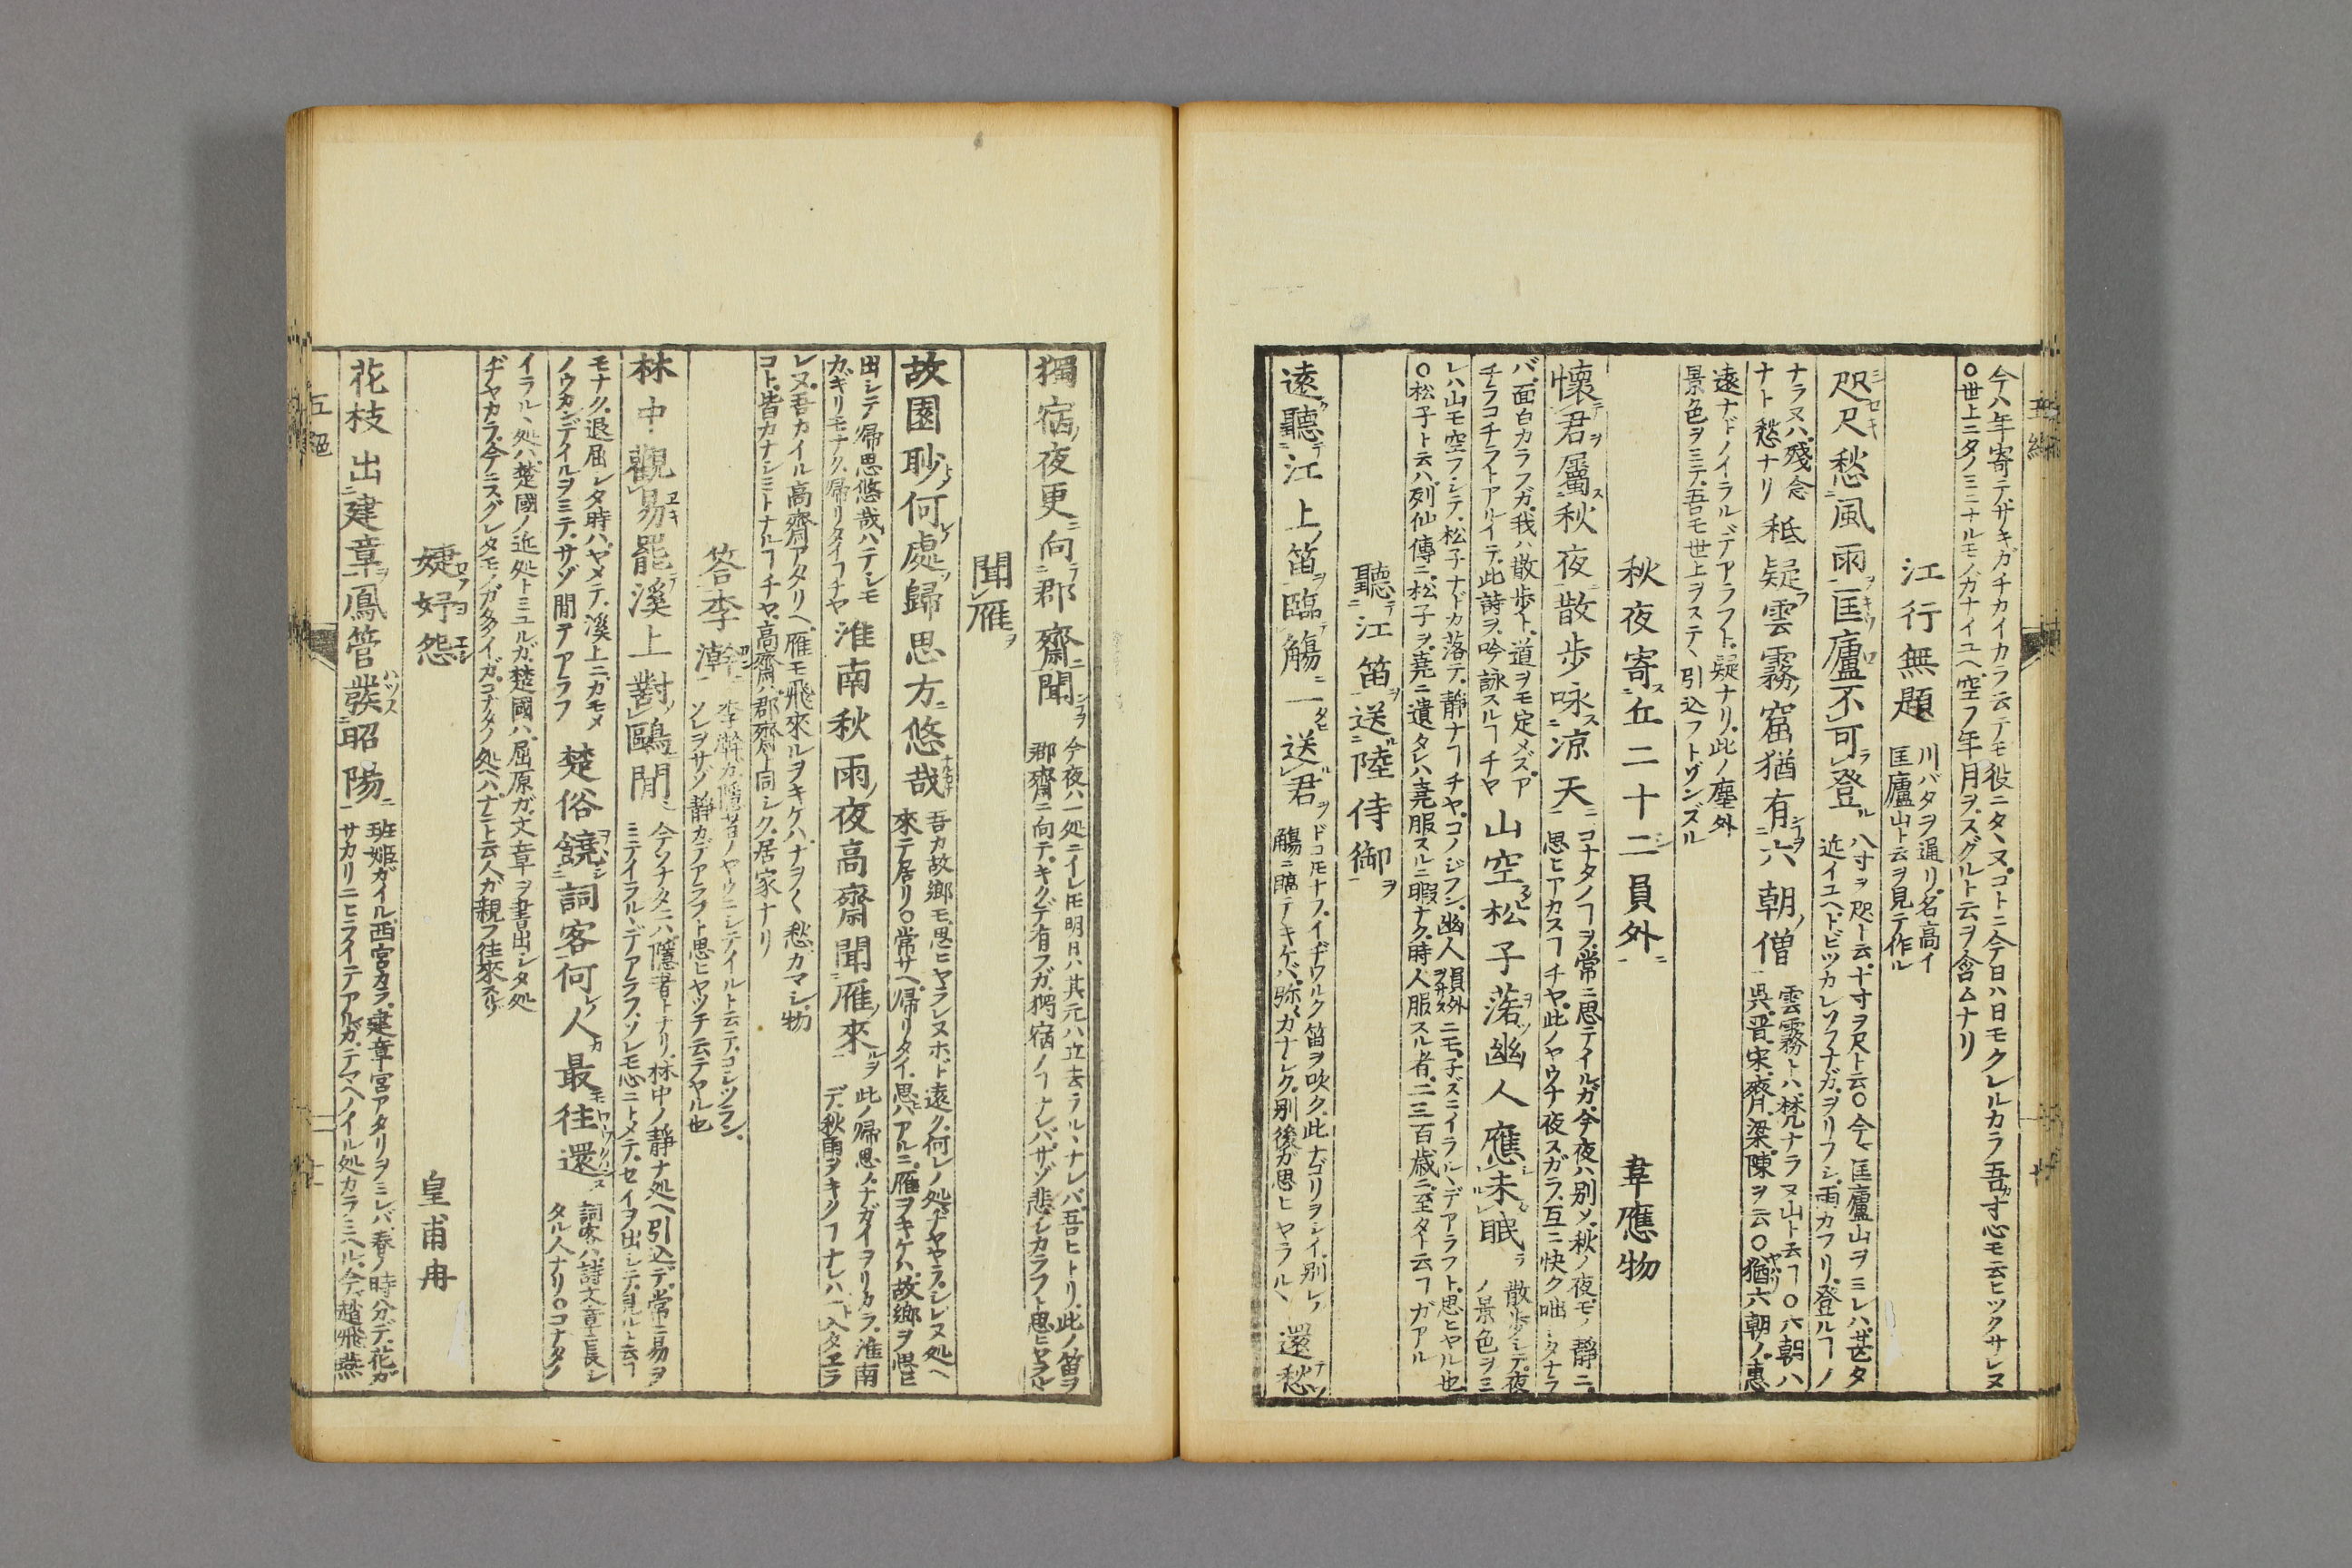 今ハ年寄テ、サキガチカイカラ云テモ役ニタヽヌ。コトニ今日ハ日モクレルカラ吾寸心モ云ヒツクサレヌ
〇世上ニタノミニナルモノガナイユヘ、空フ年月ヲ、スグルト云ヲ含ムナリ
江行無題
川バタヲ通リ、名高イ
匡廬山ト云ヲ見テ作ル
咫尺愁風雨匡廬不可登
八寸ヲ咫ト云、十寸ヲ尺ト云〇今マ匡廬山ヲミレハ、甚タ
近イユヘ、トビツカレソフナガ、ヲリフシ、雨カフリ、登ルヿノ
ナラヌハ、殘念
ナト愁ナリ
秪疑雲霧窟猶有六朝僧
雲霧トハ、梵ナラヌ山ト云ヿ〇六朝ハ
呉、晋、宋、齊、梁、陳ヲ云〇猶六朝ノ、惠
遠ナドノイラルデアラフト、疑ナリ、此ノ塵外
景色ヲミテ、吾モ世上ヲステヽ引込フトゾンズル
秋夜寄丘二十二員外
韋應物
懷君屬秋夜散歩咏凉天
コナタノヿヲ、常ニ思テイルガ、今夜ハ別メ、秋ノ夜モ、静ニ
思ヒアカスヿチヤ、此ノヤウナ夜スガラ、互ニ快ク咄シタナラ
バ、面白カラフガ、我ハ散歩ト、道ヲモ定メズ、ア
チラコチラトアルイテ、此詩ヲ、吟詠スルヿチヤ
山空松子落幽人應未眠
散歩シテ、夜
ノ景色ヲミ
レハ山モ空フシテ、松子ナドカ落テ、静ナヿチヤ、コノジフン、幽人員外ニモ、子ズニイラルヽデアラフト、思ヒヤル也
〇松子ト云ハ列仙傳ニ、松子ヲ、堯ニ遺タレハ堯服スルニ暇ナク、時人服スル者、二三百歳ニ至タト云ヿガアル
聽江笛送陸侍御
遠聽江上笛臨觴一送君
ドコトモナフ、イヂワルク笛ヲ吹ク、此ナゴリヲシイ、別レノ
觴ニ臨テキケバ、弥カナシク、別後ガ思ヒヤラルヽ
還愁
獨宿夜更向郡齋聞
今夜ハ一処ニイレトモ明日ハ其元ハ立去ラルヽナレバ、吾ヒトリ、此ノ笛ヲ
郡齋ニ向テ、キクデ有フガ、獨宿ノヿナレバ、サゾ悲シカラフト思ヒヤラル
聞雁
故園眇何處歸思方悠哉
吾カ故郷モ、思ヒヤラレヌホド遠ク、何レノ処ヂヤヤラ、シレヌ処ヘ
來テ居リ〇常サヘ帰リタイ、思ハアルニ、雁ヲキケハ、故郷ヲ思ヒ
出シテ帰思悠哉ハテシモ
カキリモナク、帰リタイヿチヤ
淮南秋雨夜高齋聞雁來
此ノ帰思ノ、ナガイヲリカラ、淮南
デ、秋雨ヲキクヿナレハ、一ト入タエラ
レヌ、吾カイル高齋アタリヘ、雁モ飛來ルヲキケハ、ナヲ〱愁カマシ、物
コト、皆カナシミトナルヿチヤ、高齋ハ、郡齋ト同シク、居家ナリ
答李澣
李澣カ、隠者ノヤウニシテイルト云テ、コシツラン、
ソレヲサゾ静カデアラフト思ヒヤツテ云テヤル也
林中觀易罷溪上對鷗閒
今ソナタニハ、隱者トナリ、林中ノ静ナ処ヘ引込デ、常ニ易ヲ
ミテイラルヽデアラフ、ソレモ心ニトメテ、セイヲ出シテ、見ルト云ヿ
モナク、退屈シタ時ハ、ヤメテ、溪上ニ、カモメ
ノウカンデイルヲミテ、サゾ閒テアラフ
楚俗饒詞客何人最往還
詞客ハ、詩文章ニ長シ
タル人ナリ〇コナタノ
イラルヽ処ハ、楚國ノ近処トミユルガ、楚國ハ、屈原ガ、文章ヲ書出シタ処
ヂヤカラ、今ニスグレタモノガ多イガ、コナタノ処ヘハ、ナニト云人ガ親フ往來スルゾ
婕妤怨
皇甫冉
花枝出建章鳳管發昭陽
班姫ガイル、西宮カラ、建章宮アタリヲミレバ、春ノ時分デ、花ガ
サカリニヒライテアルガ、テマヘノイル処カラミヘル、今マ趙飛燕
五絕